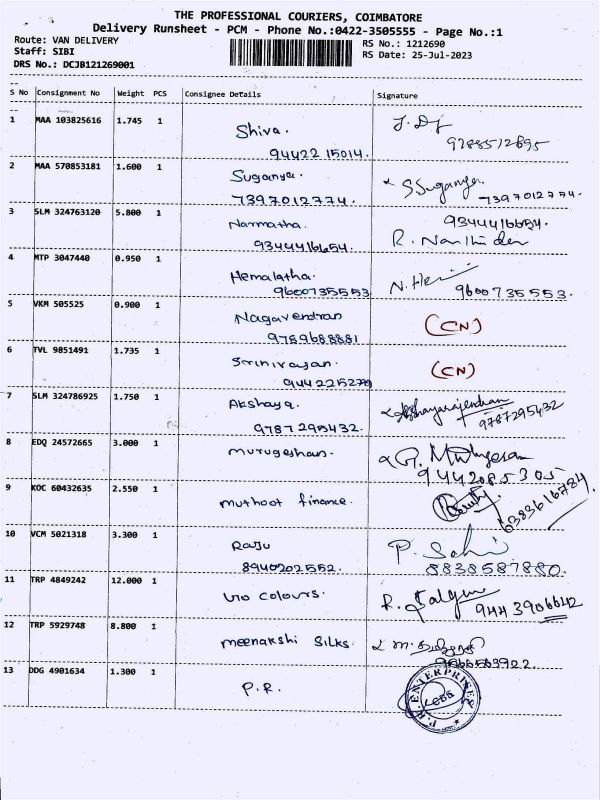 THE PROFESSIONAL COURIERS, COIMBATORE
Delivery Runsheet - PCM - Phone No.:0422-3505555 - Page No.:1
Route: VAN DELIVERY
RS No.: 1212690
Staff: SIBI
RS Date: 25-Jul-2023
DRS No.: DCJB121269001
S No Consignment No Weight PCS Consignee Details Signature
1 MAA 103825616 1.745 1
Shiva.
94422 15014.
9788512895
2 MAA 570853181 1.600 1
Suganya.
S Suganya.
7397012774.
7397012774.
3 SLM 324763120 5.800 1
Narmatha.
9344416654.
9344416654.
R.
4 MTP 3047440 0.950 1
Hemalatha.
N.
9600735553
9600735553.
5 VKM 505525 0.900 1
Nagavendran
9789688881
(CN)
6 TVL 9851491 1.735 1
Srinivasan.
9442215279
(CN)
7 SLM 324786925 1.750 1
Akshaya.
Akshayarajendran
9787295432.
9787295432
8 EDQ 24572665 3.000 1
murugeshan.
9442085305
9 KOC 60432635 2.550 1
muthoot finance.
6383616784
10 VCM 5021318 3.300 1
Raju
8940202552.
P.
8838587880.
11 TRP 4849242 12.000 1
Vio colours.
R.
9443906642
12 TRP 5929748 8.800 1
meenakshi silks.
9566563922.
13 DDG 4901634 1.300 1
P.R.
P.R. ENTERPRISES